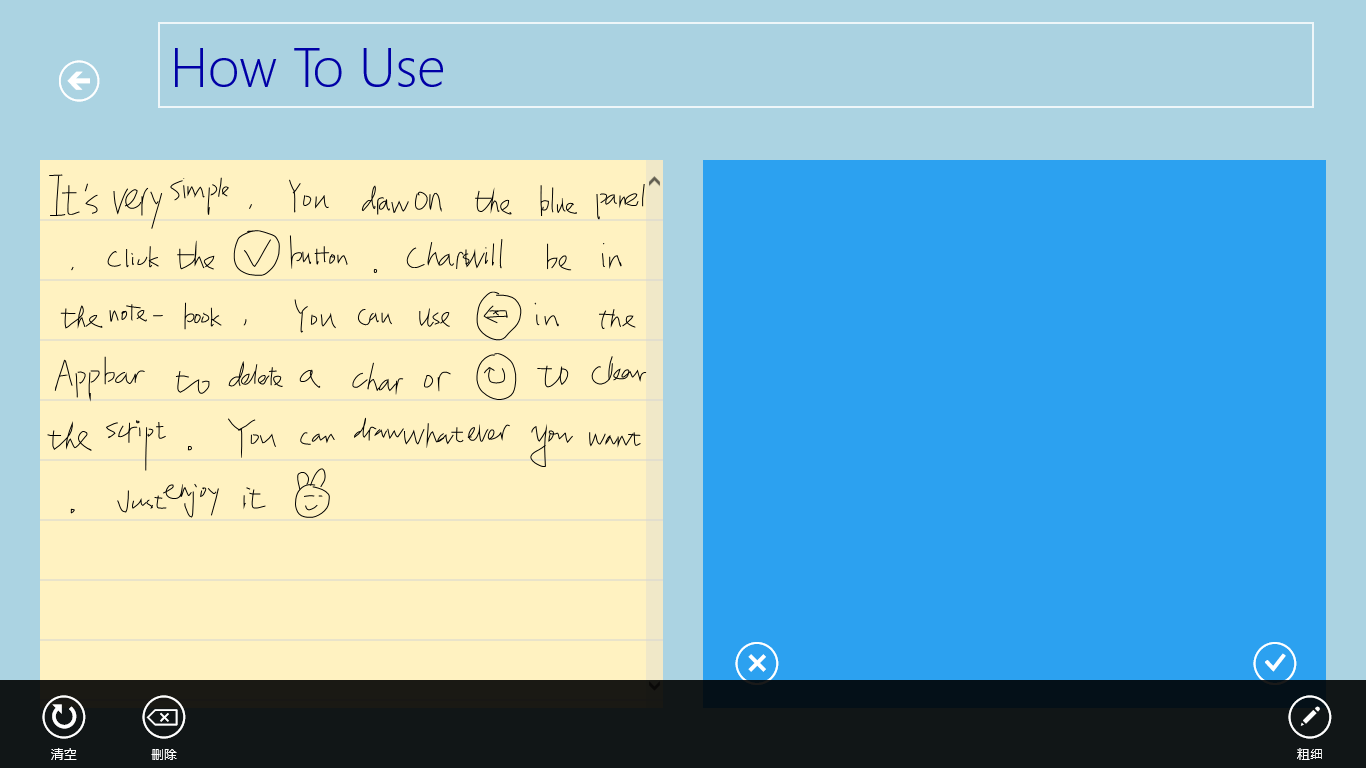 How To Use
It's very simple . You draw on the blue panel
. Click the button . Chars will be in
the note- book , You can use in the
Appbar to delete a char or to clear
the script . You can draw whatever you want
. Just enjoy it
清空 刪除 粗细